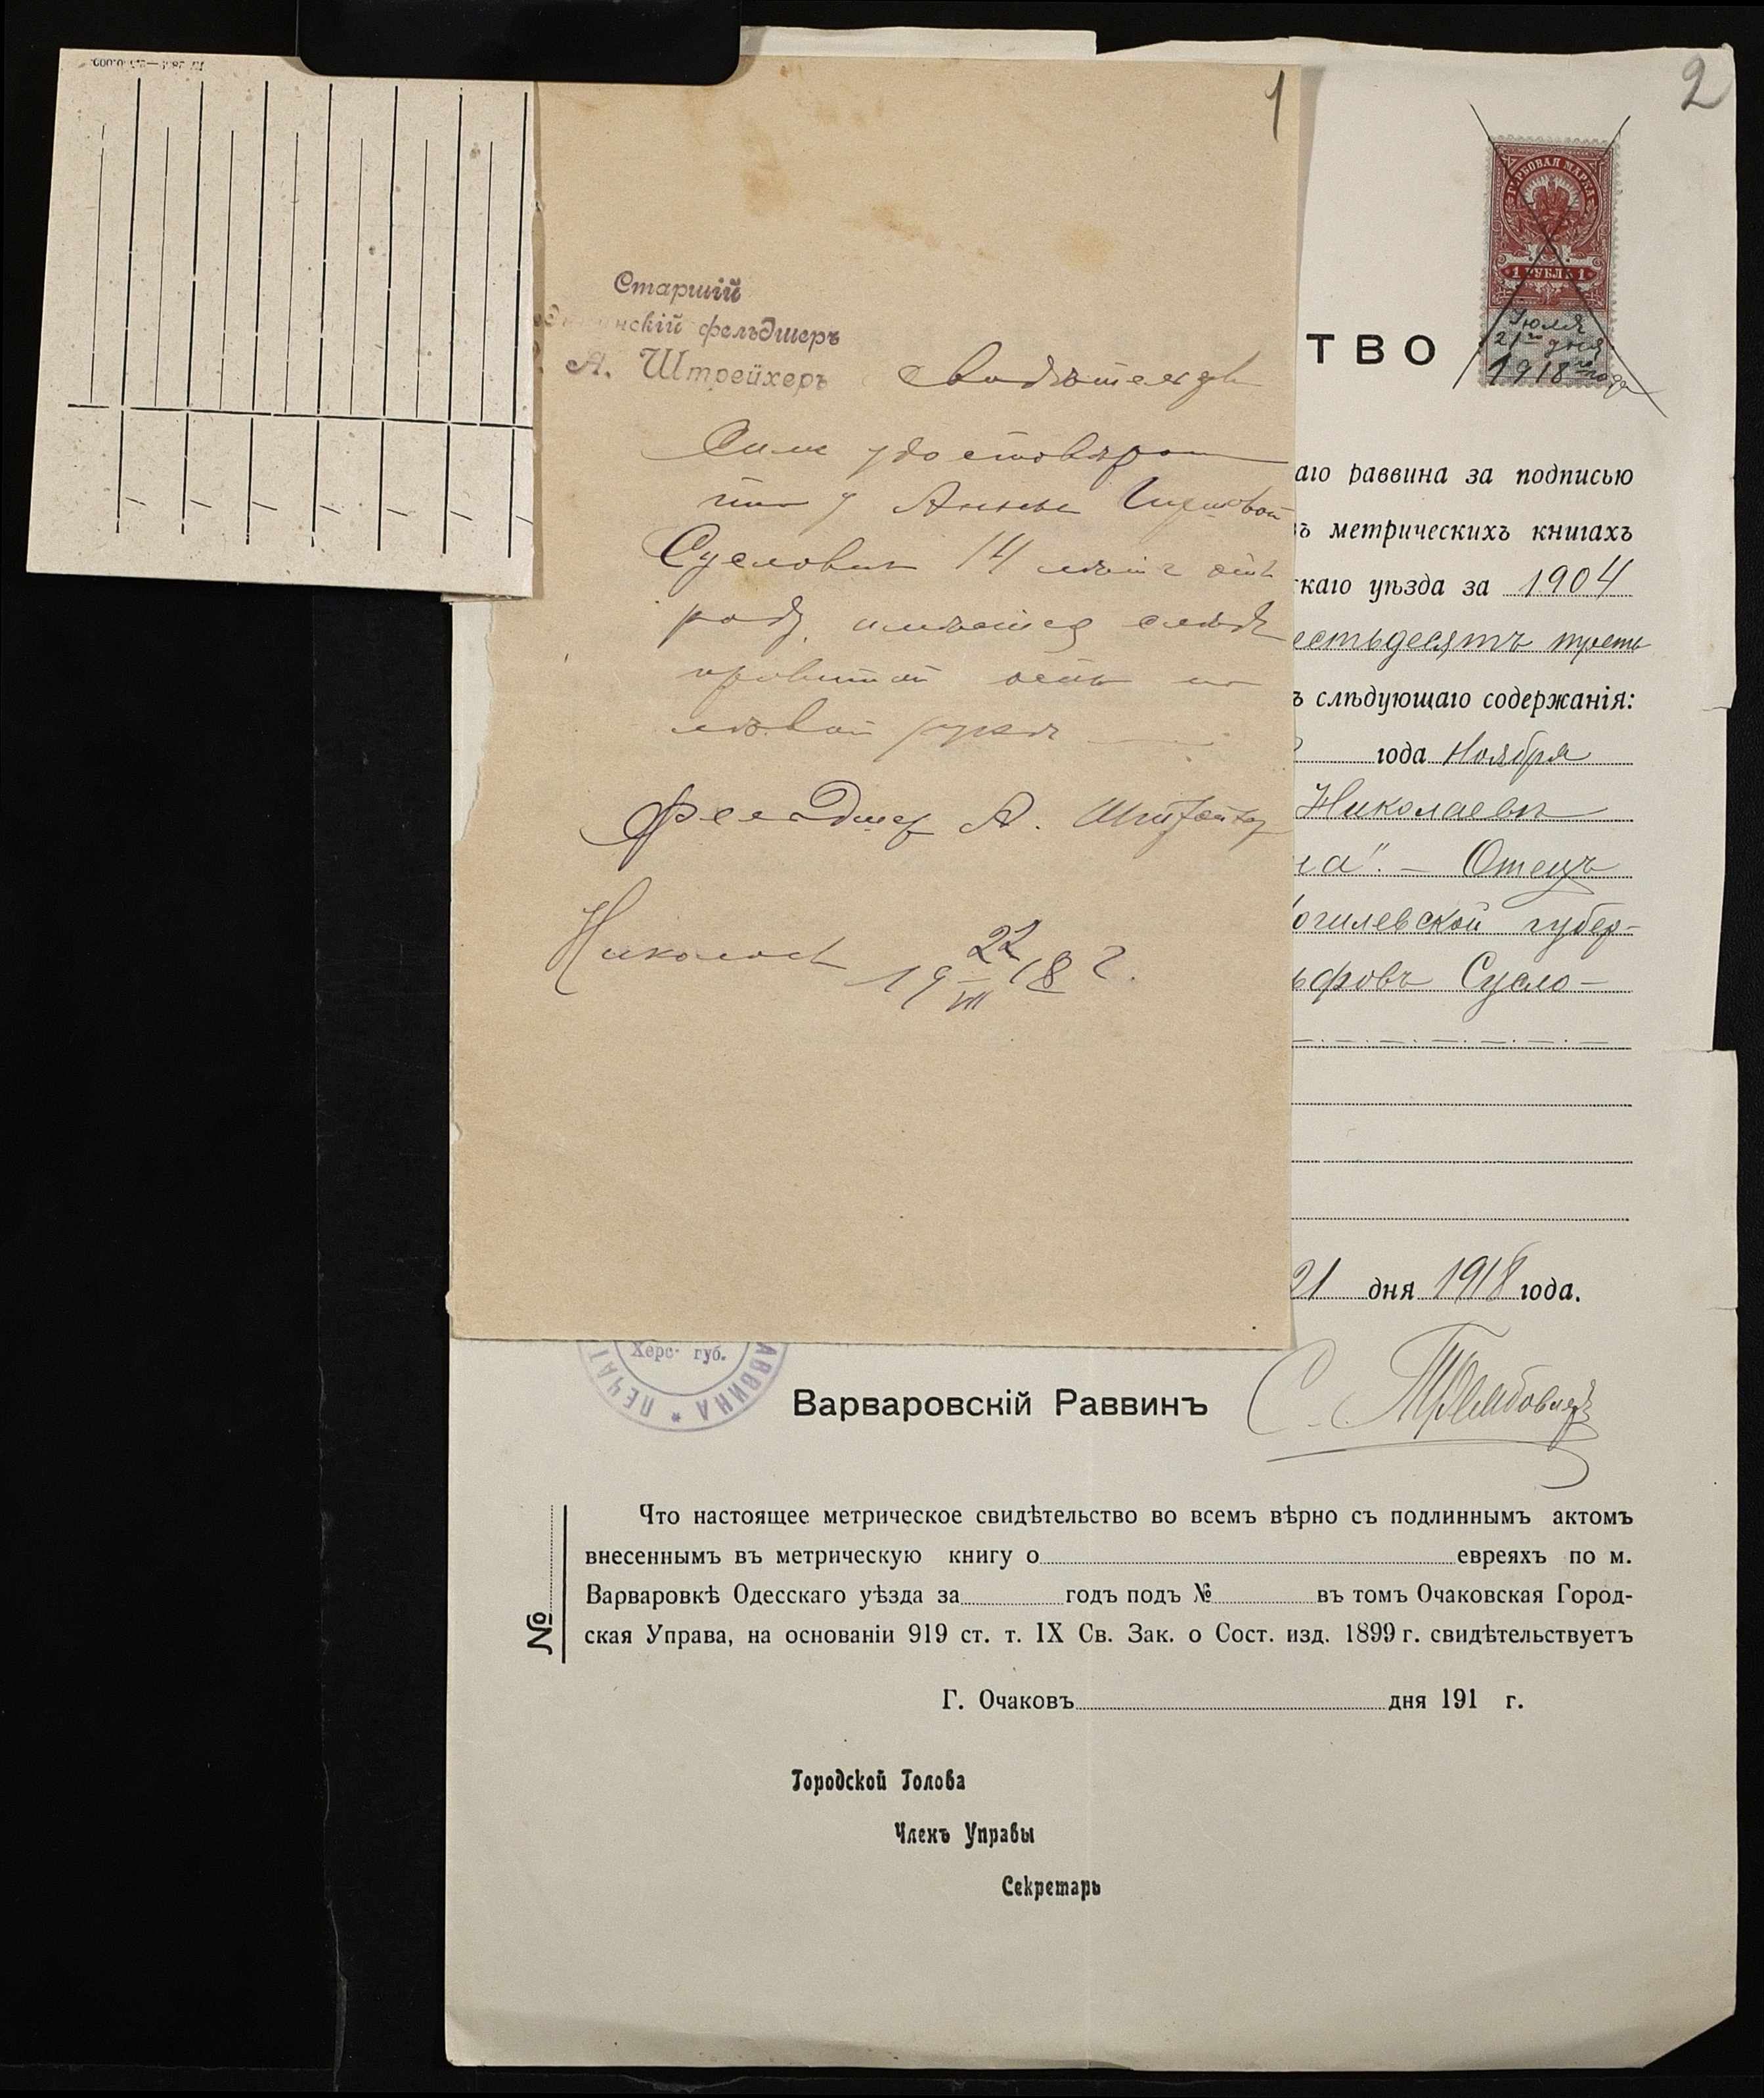 1
Старшій
фельдшеръ
А. Штрейхеръ
Свидѣтельство
Сим удостоверяю
что у Анны
Сусловой 14 лѣтъ отъ
роду, имѣется слѣдъ
привитой оспы на
лѣвой рукѣ
Фельдшер А. Штрейхер
Николаев 19 22/VII 18 г.
2
ГЕРБОВАЯ МАРКА
1 РУБЛЬ 1
Іюля
21го дня
1918го года
ТВО
аго раввина за подписью
ъ метрическихъ книгахъ
каго уѣзда за 1904
естьдесятъ треть
ъ слѣдующаго содержанія:
года Ноября
Николаевѣ
на". — Отецъ
огилевской губер-
ьфовъ Сусло-
21 дня 1918 года.
Херс. губ.
РАВВИНА * ПЕЧАТ
Варваровскій Раввинъ С.
№
Что настоящее метрическое свидѣтельство во всемъ вѣрно съ подлиннымъ актомъ
внесеннымъ въ метрическую книгу о евреяхъ по м.
Варваровкѣ Одесскаго уѣзда за годъ подъ № въ томъ Очаковская Город-
ская Управа, на основаніи 919 ст. т. IX Св. Зак. о Сост. изд. 1899 г. свидѣтельствуетъ
Г. Очаковъ дня 191 г.
Городской Голова
Членъ Управы
Секретарь